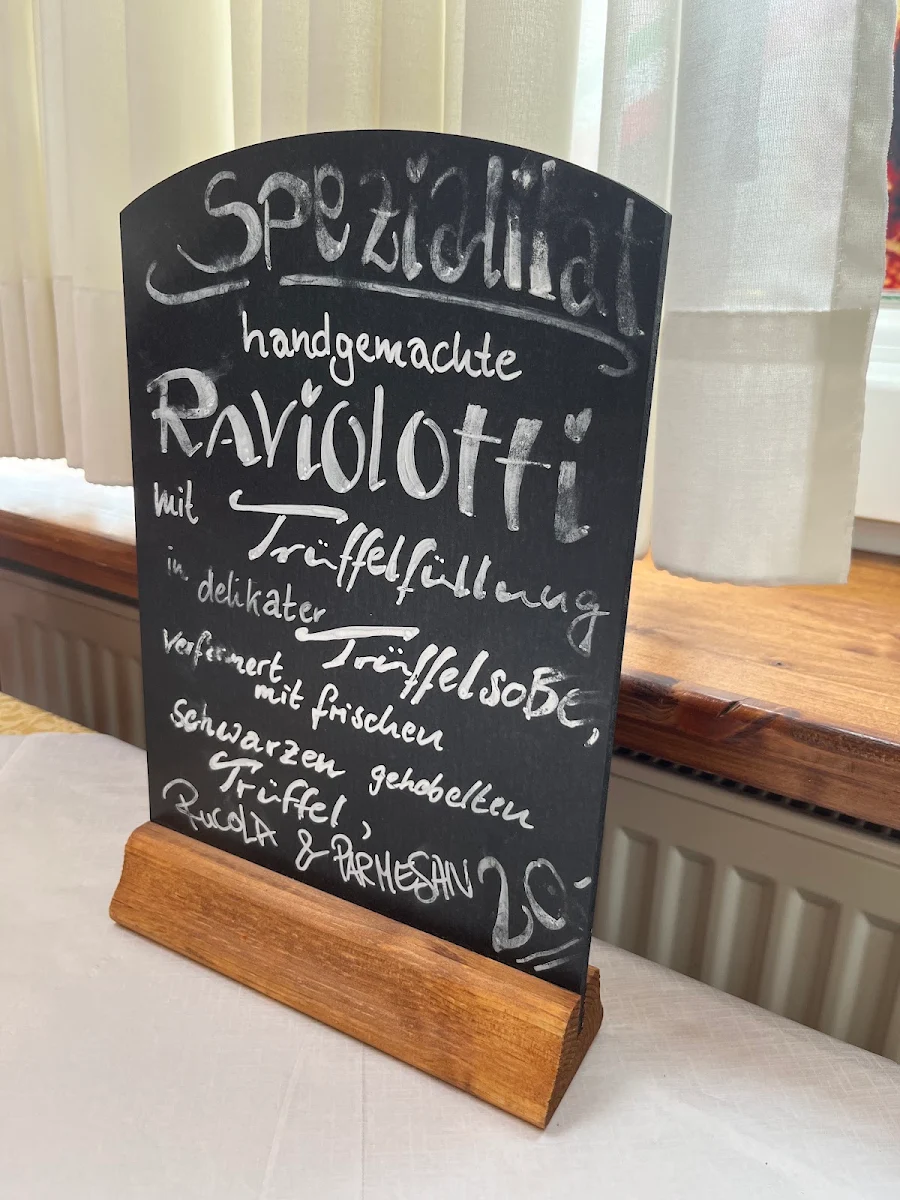 Spezialität
handgemachte
RAViolotti
mit Trüffelfüllung
in delikater
Trüffelsoße,
verfeinert
mit frischen
schwarzen gehobelten
Trüffel,
RucolA & PARMESAN 20,-